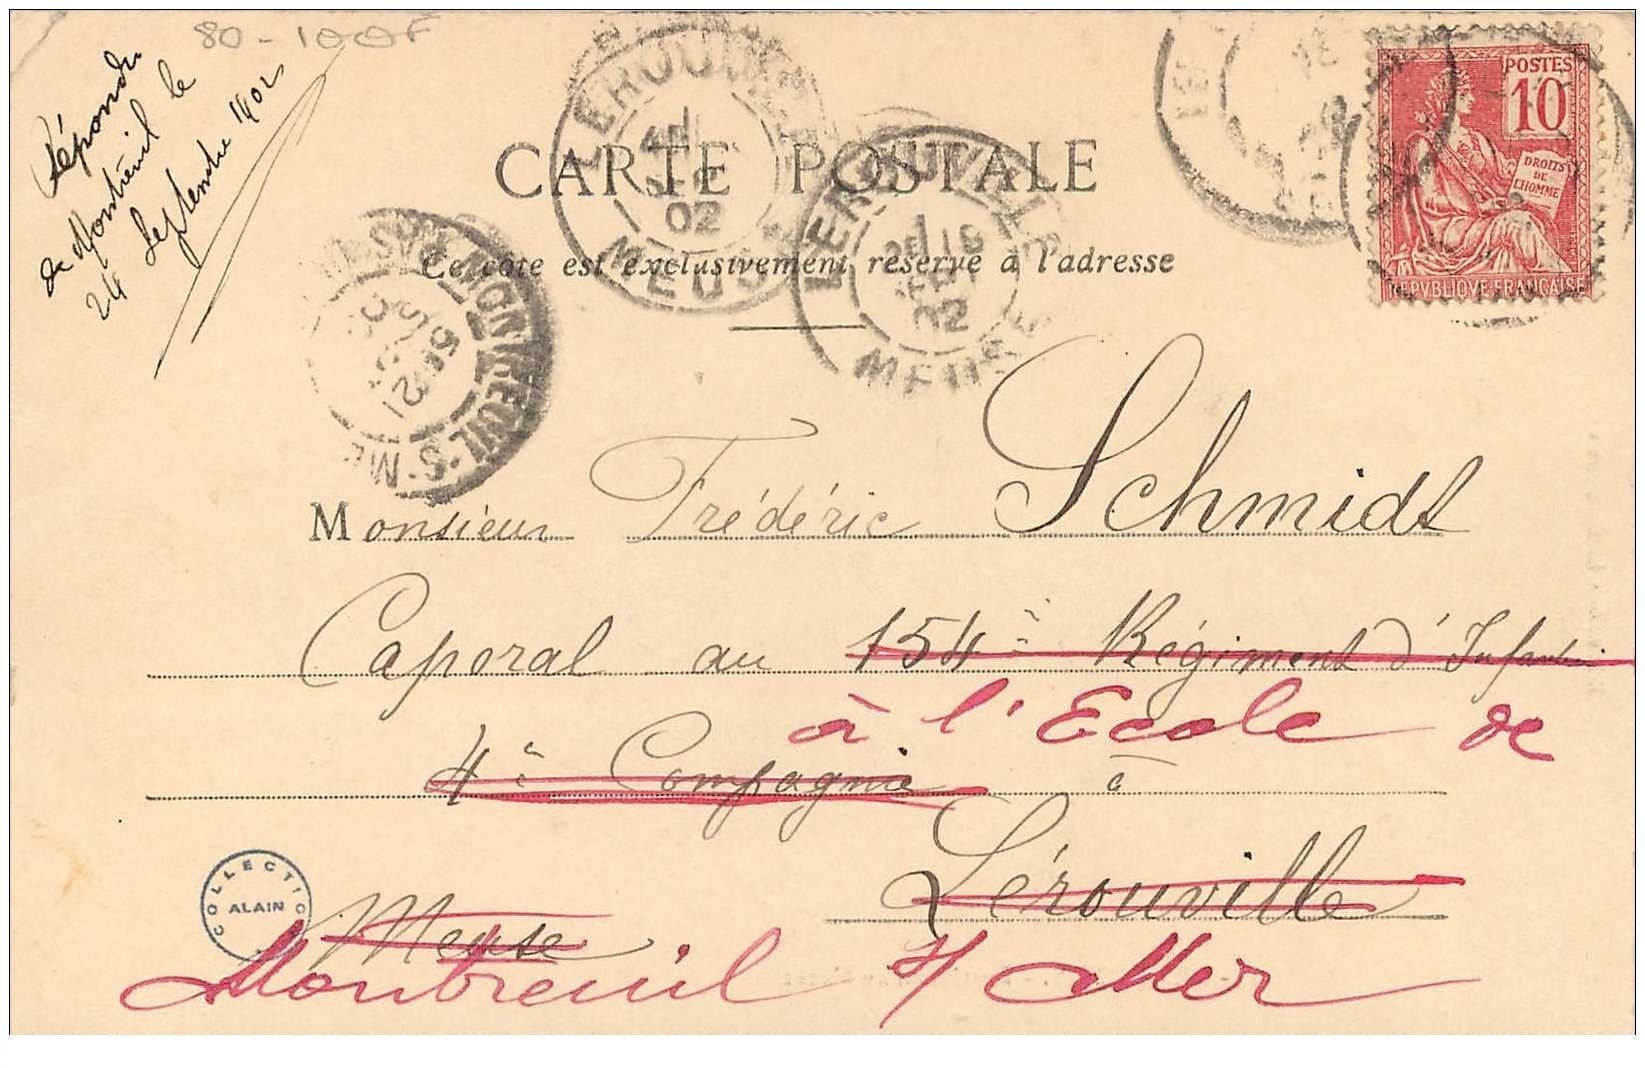 80-100F
Répondu
de Montreuil le
24 Septembre 1902
CARTE POSTALE
Ce côté est exclusivement réservé à l'adresse
POSTES
10
DROITS
DE
L'HOMME
REPVBLIQVE FRANÇAISE
LEROUVILLE
SEPT
02
MEUSE
LEROUVILLE
18
02
MEUSE
MONTREUIL-S-MER
21
Monsieur Frédéric Schmidt
Caporal au 154e Régiment d'Infanterie
à l'Ecole de
4e Compagnie à
Lérouville
Meuse
Montreuil s/ Mer
COLLECTION
ALAIN